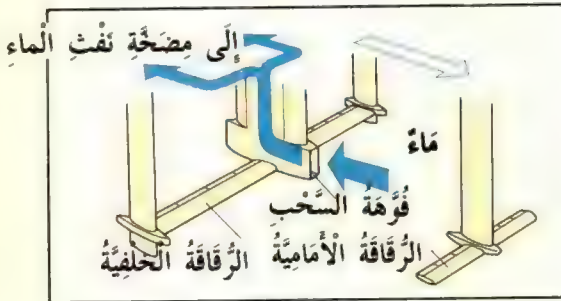 إِلَى مِضَخَّةِ نَفْثِ الْماءِ
مَاءٌ
فُوَّهَةُ السَّحْبِ
الرُّقَاقَةُ الْأَمَامِيَّةُ
الرُّقَاقَةُ الْخَلْفِيَّةُ